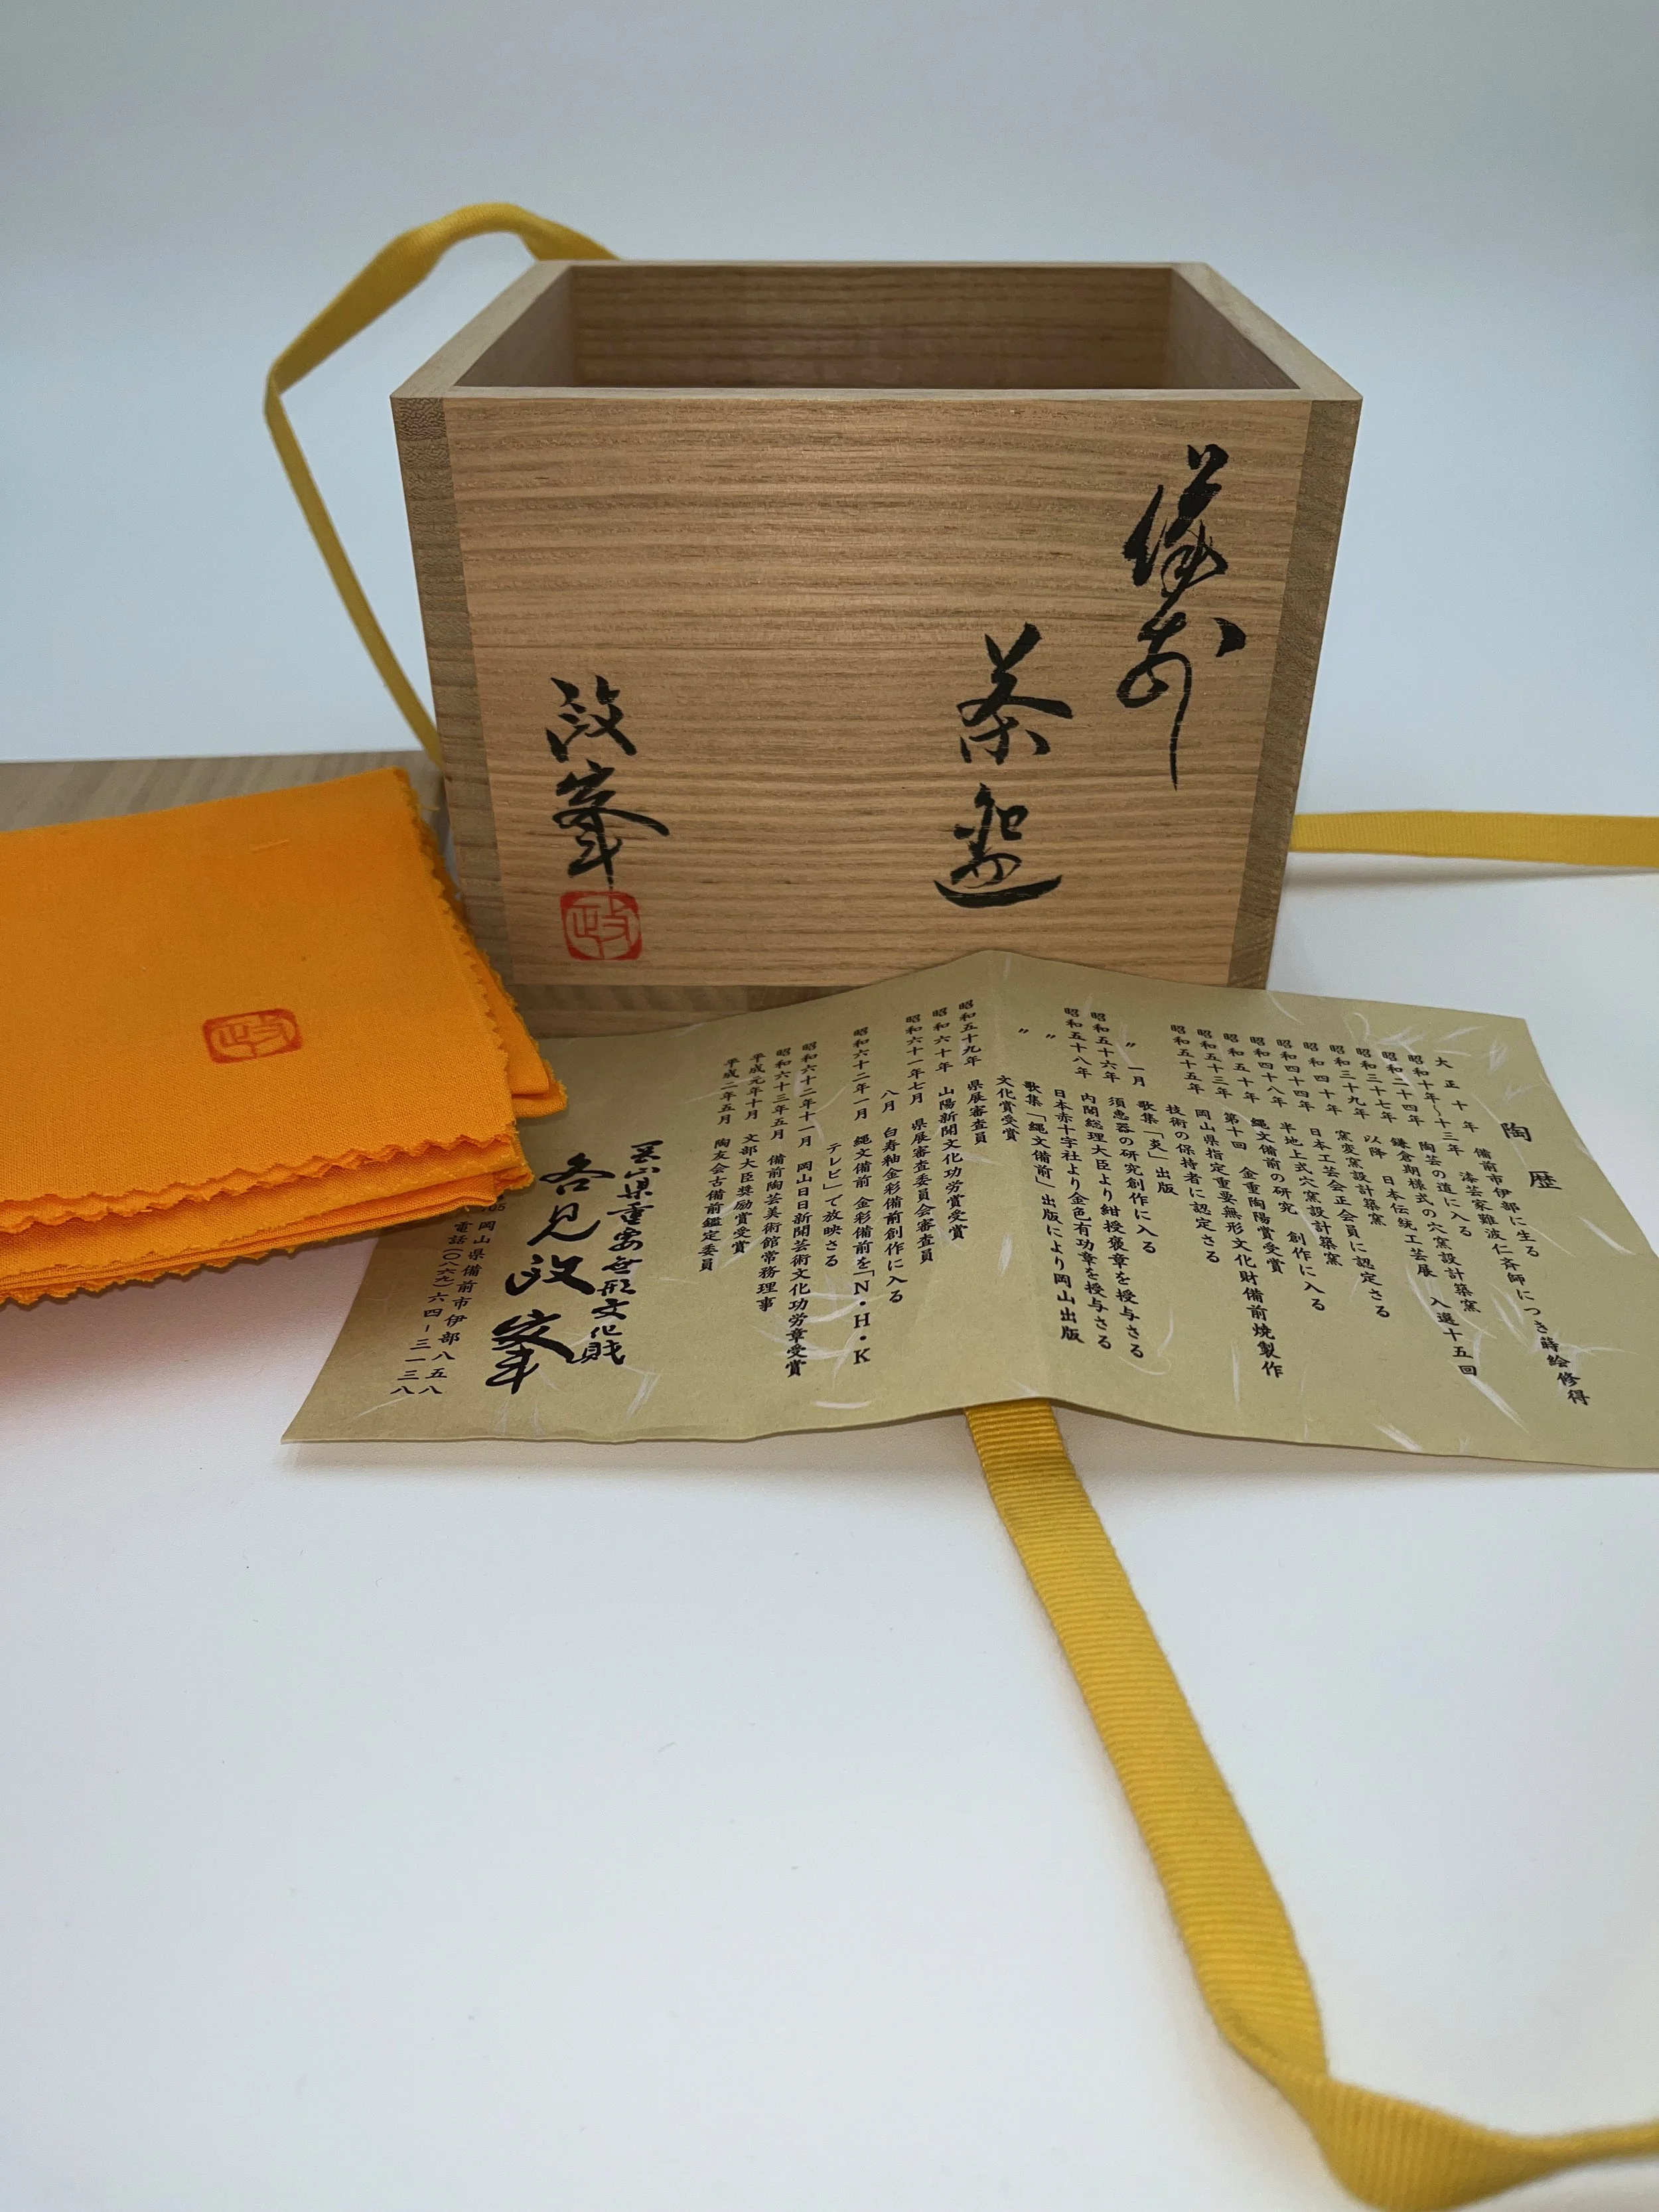 備前
茶盌
政峯
政
政
陶歴
大正十年 備前市伊部に生る
昭和十年～十三年 漆芸家難波仁斉師につき蒔絵修得
昭和二十四年 陶芸の道に入る
昭和三十七年 鎌倉期様式の穴窯設計築窯
昭和三十九年 以降 日本伝統工芸展 入選十五回
昭和四十年 窯変窯設計築窯
昭和四十四年 日本工芸会正会員に認定さる
昭和四十八年 半地上式穴窯設計築窯
昭和五十年 縄文備前の研究 創作に入る
昭和五十三年 第十回 金重陶陽賞受賞
昭和五十五年 岡山県指定重要無形文化財備前焼製作
技術の保持者に認定さる
〃 一月 歌集「炎」出版
昭和五十六年 須恵器の研究創作に入る
昭和五十八年 内閣総理大臣より紺授褒章を授与さる
〃 日本赤十字社より金色有功章を授与さる
〃 歌集「縄文備前」出版により岡山出版
文化賞受賞
昭和五十九年 県展審査員
昭和六十年 山陽新聞文化功労賞受賞
昭和六十一年七月 県展審査委員会審査員
八月 白寿釉金彩備前創作に入る
昭和六十二年一月 縄文備前 金彩備前を「N・H・K
テレビ」で放映さる
昭和六十二年十一月 岡山日日新聞芸術文化功労章受賞
昭和六十三年五月 備前陶芸美術館常務理事
平成元年十月 文部大臣奨励賞受賞
平成二年五月 陶友会古備前鑑定委員
岡山県重要無形文化財
各見政峯
岡山県備前市伊部八五八
電話(〇八六九)六四-三一三八